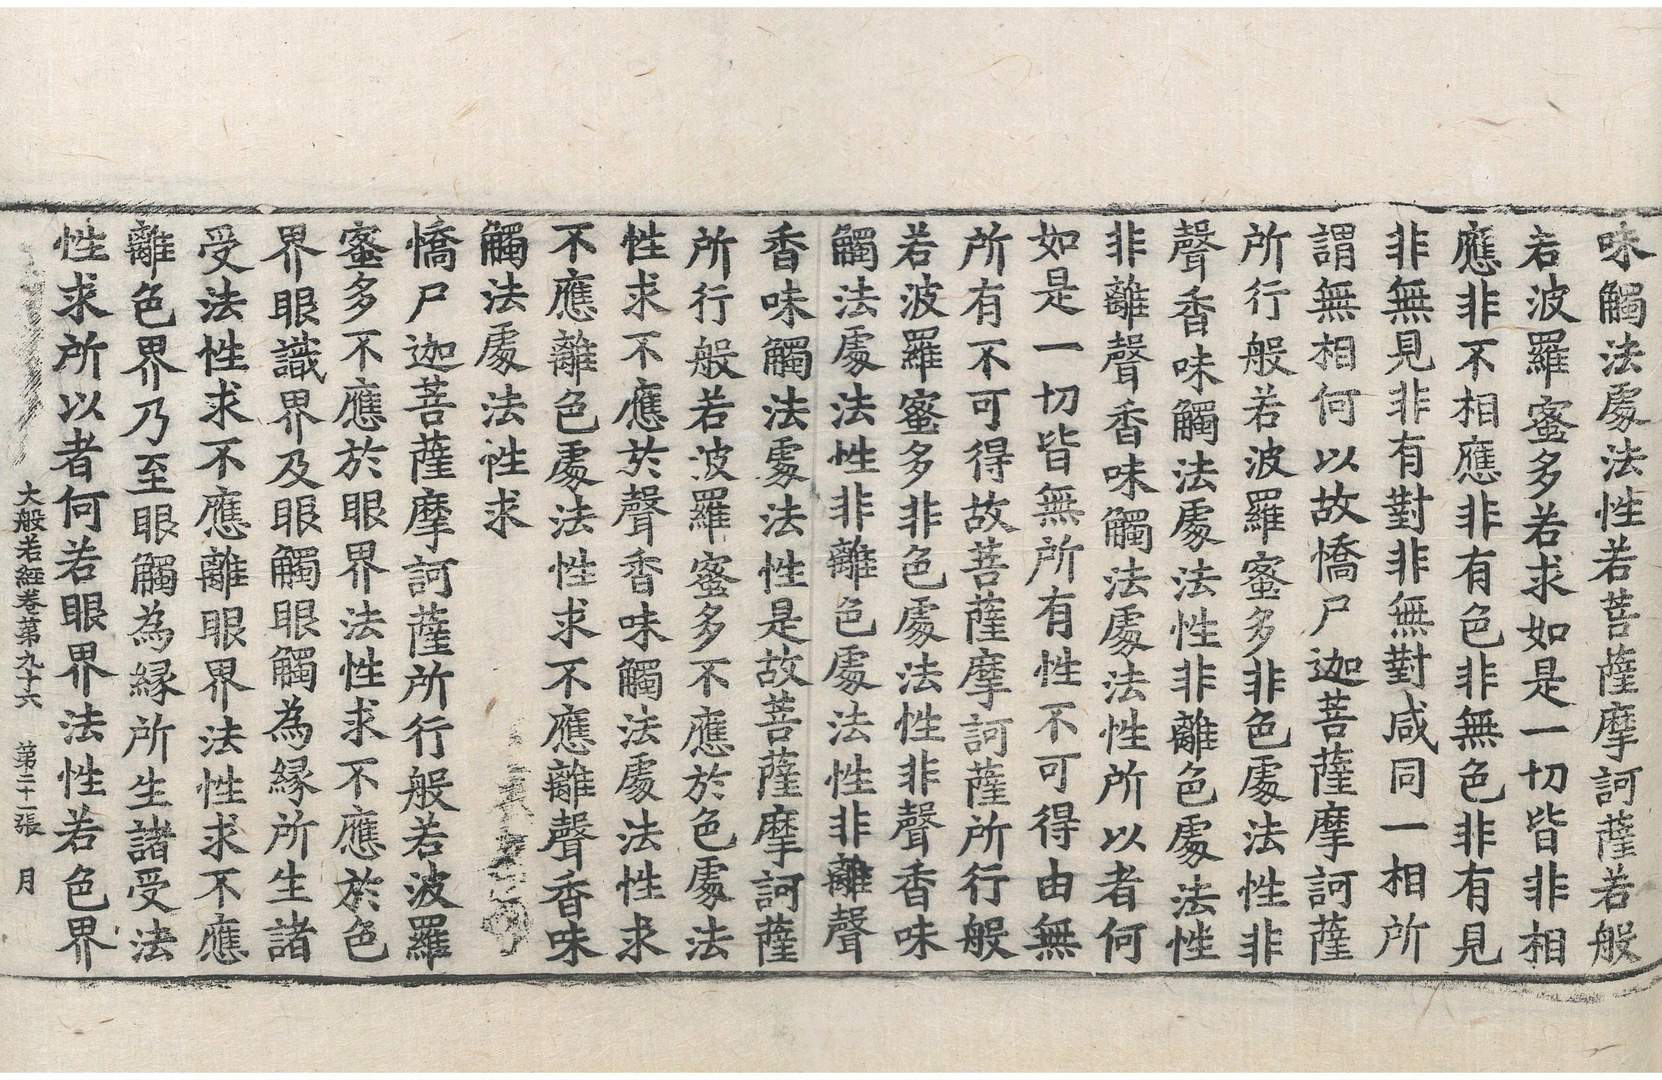 味觸法處法性若菩薩摩訶薩若般
若波羅蜜多若求如是一切皆非相
應非不相應非有色非無色非有見
非無見非有對非無對咸同一相所
謂無相何以故憍尸迦菩薩摩訶薩
所行般若波羅蜜多非色處法性非
聲香味觸法處法性非離色處法性
非離聲香味觸法處法性所以者何
如是一切皆無所有性不可得由無
所有不可得故菩薩摩訶薩所行般
若波羅蜜多非色處法性非聲香味
觸法處法性非離色處法性非離聲
香味觸法處法性是故菩薩摩訶薩
所行般若波羅蜜多不應於色處法
性求不應於聲香味觸法處法性求
不應離色處法性求不應離聲香味
觸法處法性求
憍尸迦菩薩摩訶薩所行般若波羅
蜜多不應於眼界法性求不應於色
界眼識界及眼觸眼觸為緣所生諸
受法性求不應離眼界法性求不應
離色界乃至眼觸為緣所生諸受法
性求所以者何若眼界法性若色界
大般若經卷第九十六 第二十一張 月